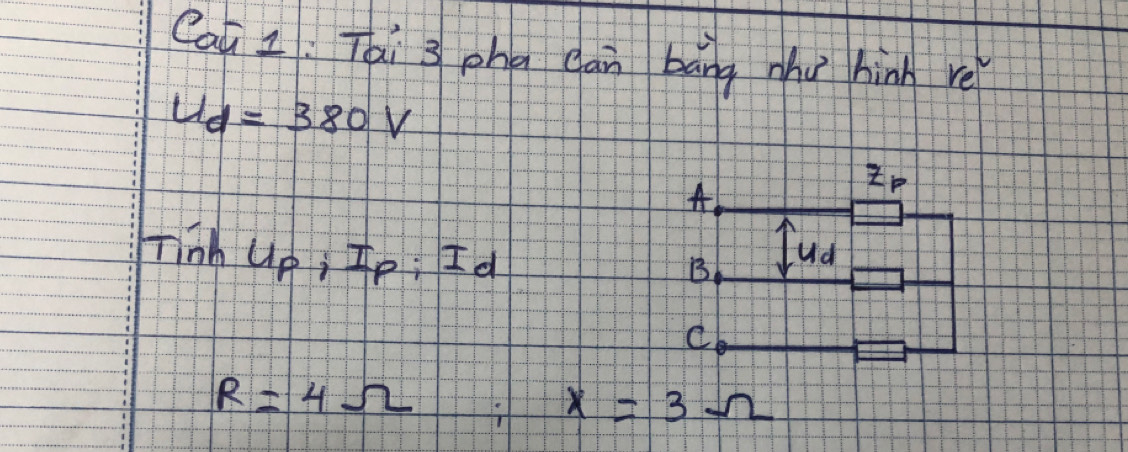 Câu 1: Tải 3 pha cân bằng như hình vẽ
Ud = 380 V
Zp
A
Ud
Tính Up; Ip; Id
B
C
R = 4 Ω ; X = 3 Ω